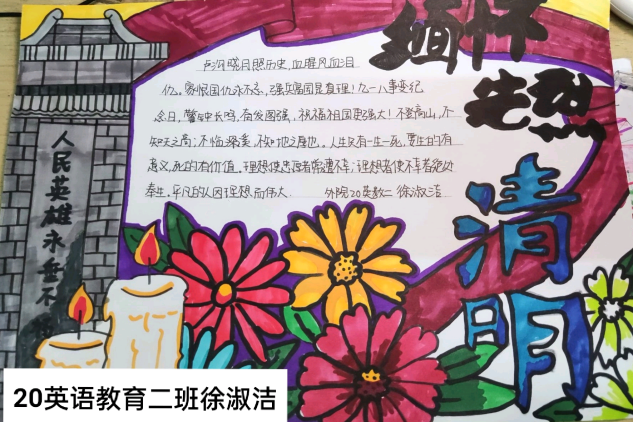 缅怀
先烈
清明
卢沟晓月照历史,血腥风雨泪
忆。家恨国仇永不忘,强兵富国是真理!九一八事变纪
念日,警钟长鸣,奋发图强,祝福祖国更强大!不登高山,不
知天之高;不临深溪,不知地之厚也,人生只有一生一死,要生的有
意义,死的有价值。理想使忠厚者常遭不幸;理想者使不幸者绝处
逢生。平凡的人因理想而伟大。 外院20英教二 徐淑洁
人民英雄永垂不
20英语教育二班徐淑洁